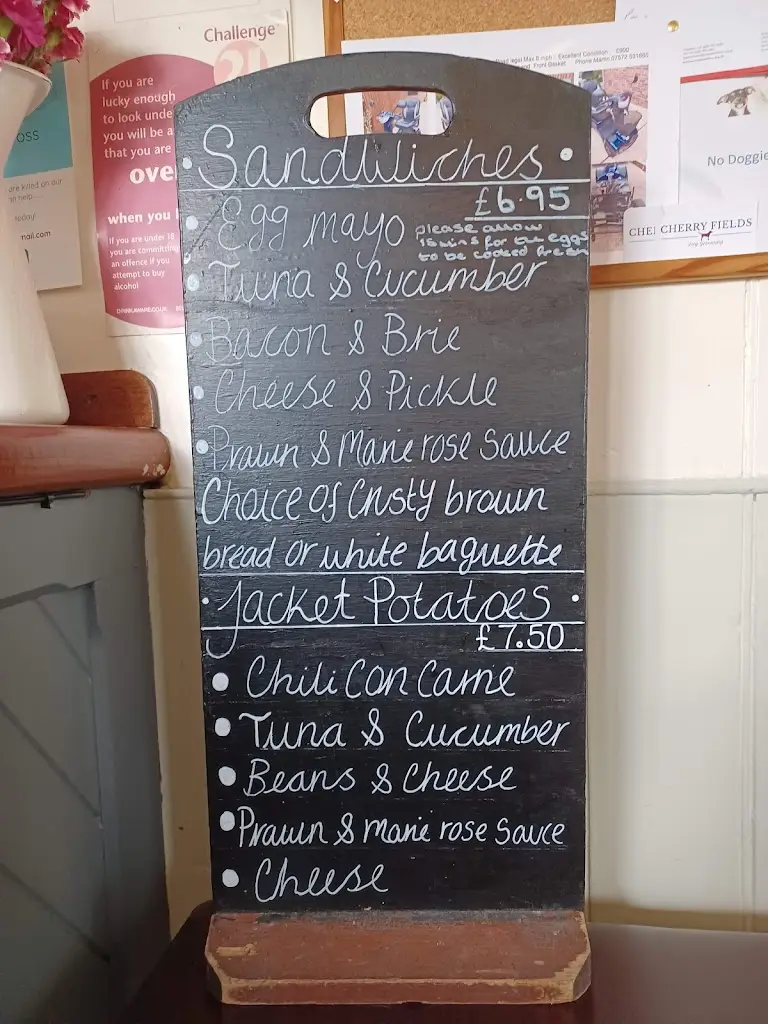 Challenge
21
If you are
lucky enough
to look unde
you will be a
that you are
ove
when you
If you are under 18
you are committing
an offence if you
attempt to buy
alcohol
oss
are killed on our
today!
mail.com
Excellent Condition £600
Phone Martin
No Doggie
CHE CHERRY FIELDS
Sandwiches
£6.95
Egg mayo
please allow
15 mins for the eggs
to be cooked fresh
Tuna & Cucumber
Bacon & Brie
Cheese & Pickle
Prawn & Marie rose sauce
Choice of Crusty brown
bread or white baguette
Jacket Potatoes
£7.50
Chili Con Carne
Tuna & Cucumber
Beans & Cheese
Prawn & marie rose sauce
Cheese